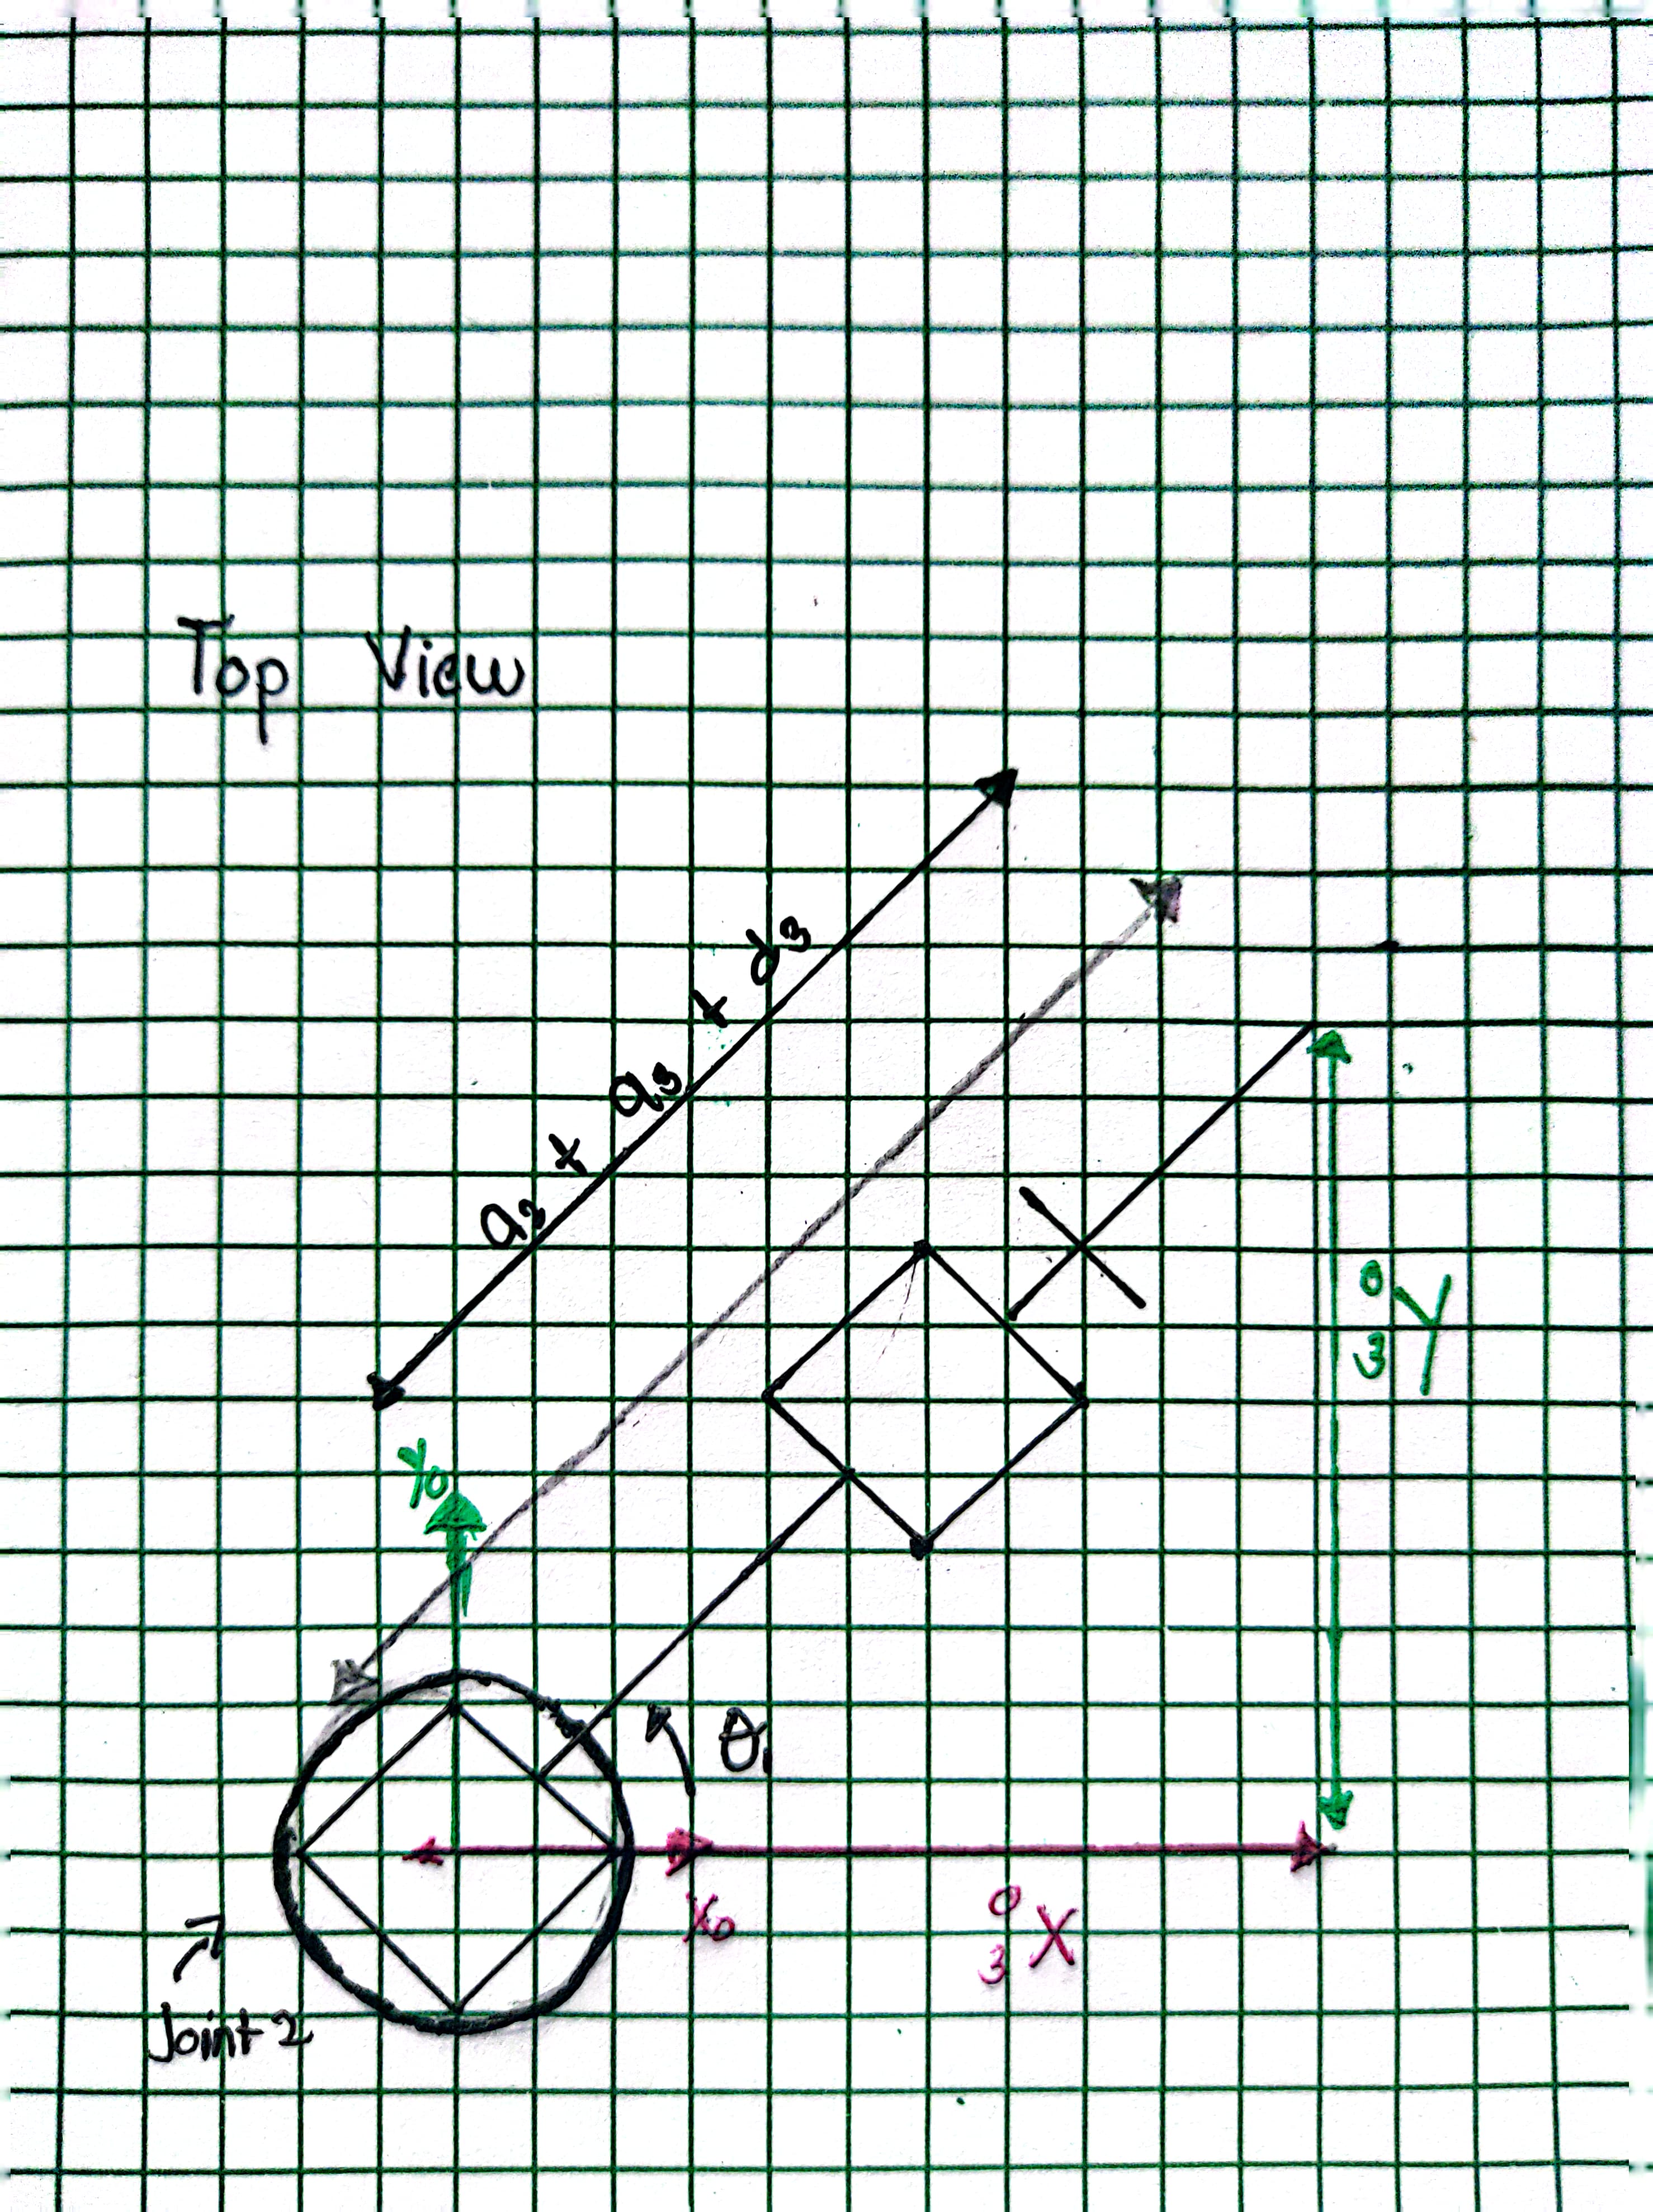 Top View
a2 + a3 + d3
Y0
0
3 Y
θ1
X0
0
3 X
Joint 2